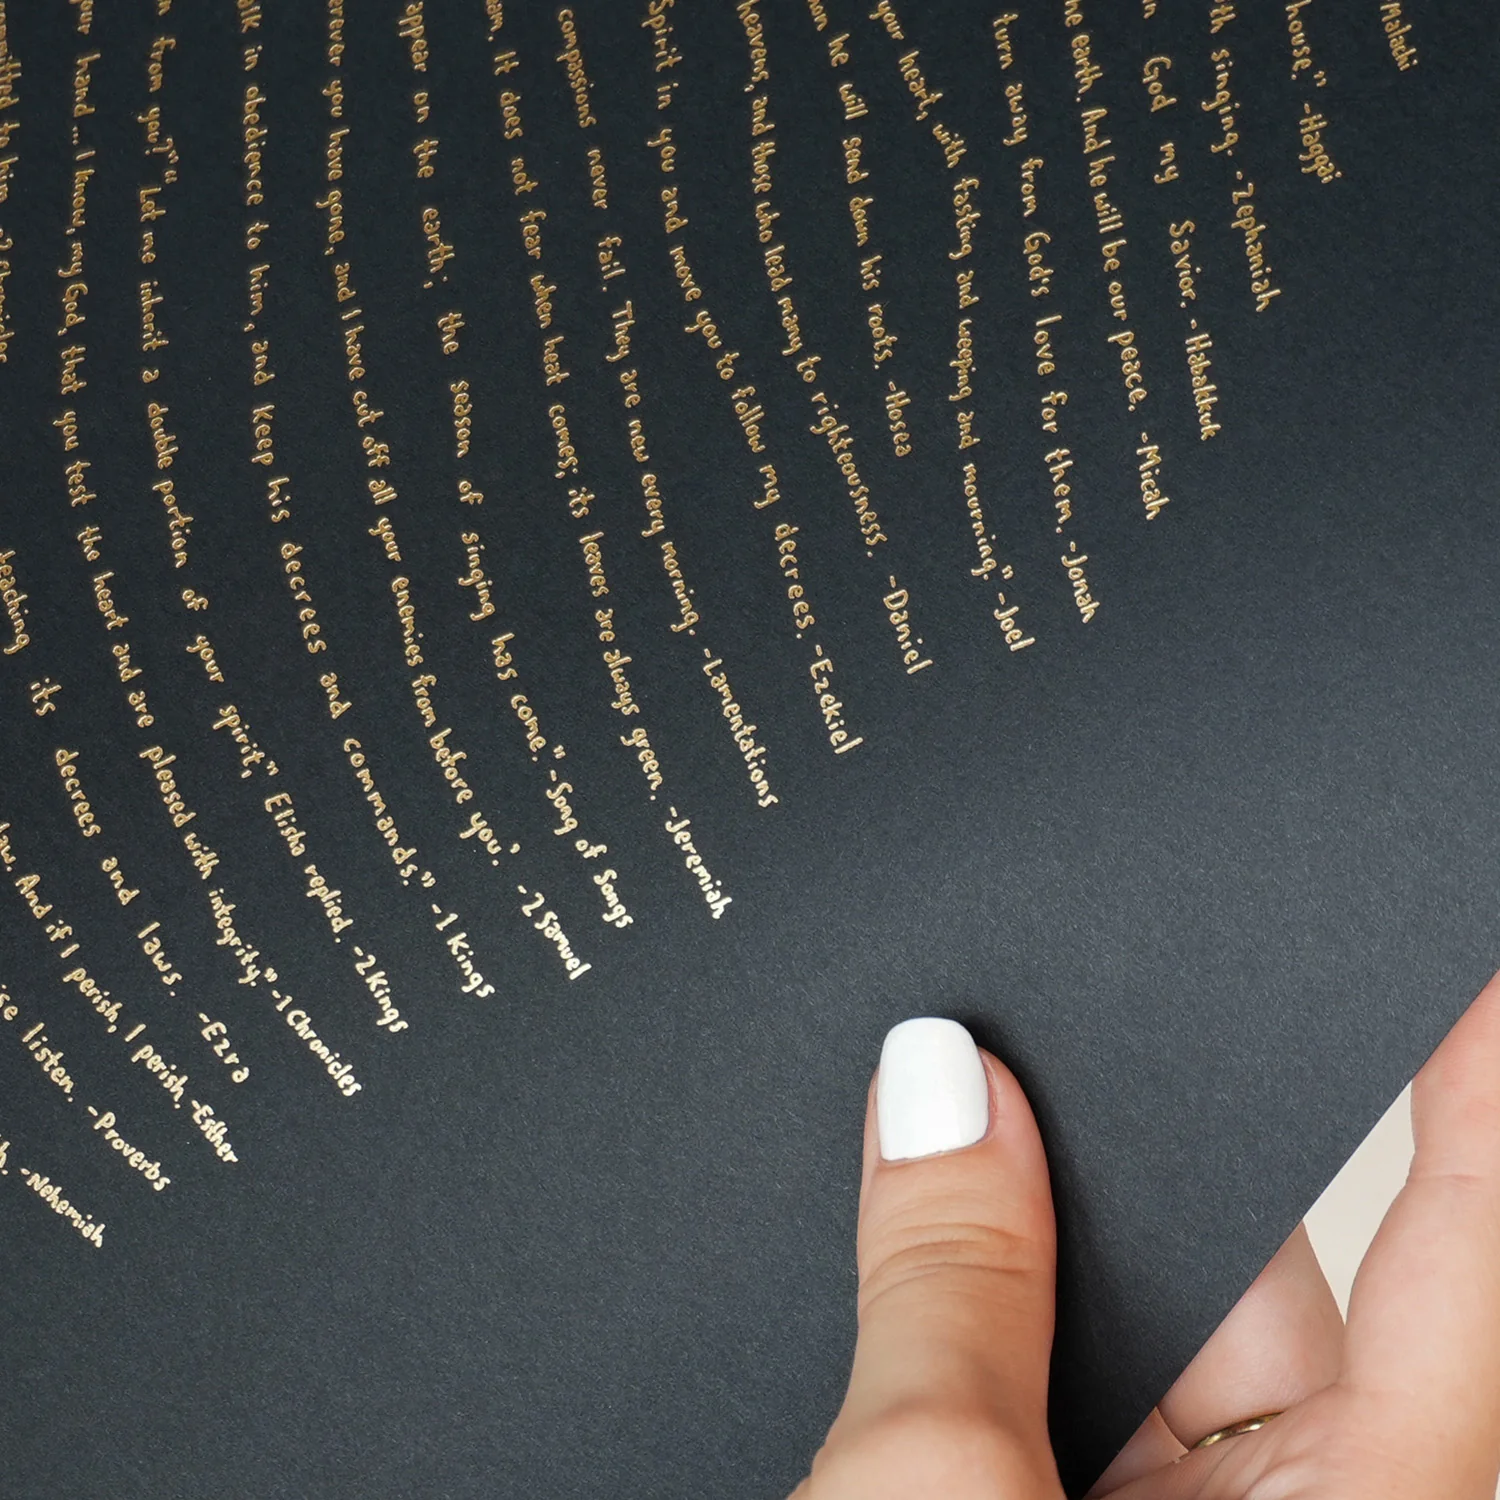 Malachi
house." -Haggai
singing. -Zephaniah
God my Savior. -Habakkuk
he earth. And he will be our peace. -Micah
turn away from God's love for them. -Jonah
your heart, with fasting and weeping and mourning." -Joel
he will send down his roots. -Hosea
heavens, and those who lead many to righteousness. -Daniel
Spirit in you and move you to follow my decrees. -Ezekiel
compassions never fail. They are new every morning. -Lamentations
It does not fear when heat comes; its leaves are always green. -Jeremiah
appear on the earth; the season of singing has come." -Song of Songs
you have gone, and I have cut off all your enemies from before you.' -2 Samuel
in obedience to him, and keep his decrees and commands." -1 Kings
from you?" "Let me inherit a double portion of your spirit," Elisha replied. -2 Kings
hand...I know, my God, that you test the heart and are pleased with integrity." -1 Chronicles
teaching its decrees and laws. -Ezra
law. And if I perish, I perish. -Esther
listen. -Proverbs
-Nehemiah